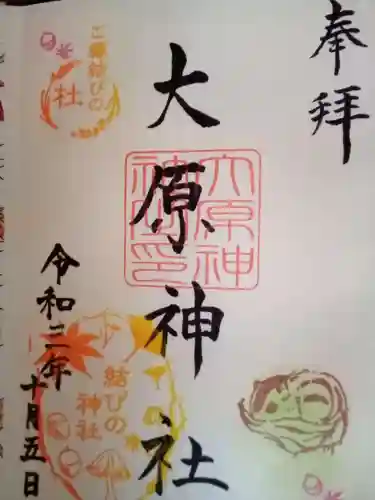 奉拝
大原神社
大原神
社之印
ご縁結びの
社
令和二年
十月五日
結びの
神社